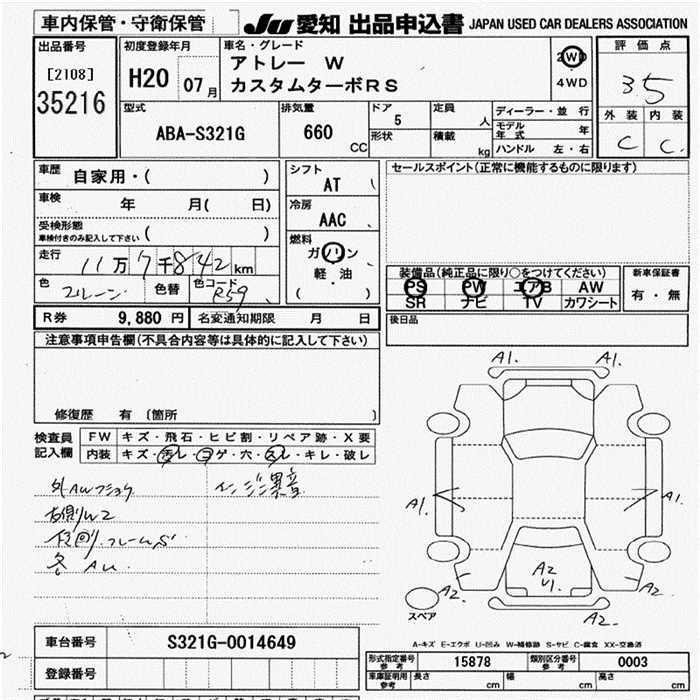 車内保管・守衛保管 JU 愛知 出品申込書 JAPAN USED CAR DEALERS ASSOCIATION
出品番号 初度登録年月 車名・グレード 評価点
[2108] 35216 H20 07月 アトレー W 2WD 35
カスタムターボRS 4WD
型式 排気量 ドア 定員 ディーラー・並行 外装 内装
ABA-S321G 660 CC 5 人 モデル年式 年 C C
形状 積載 kg ハンドル 左・右
車歴 自家用・( ) シフト AT セールスポイント(正常に機能するものに限ります)
車検 年 月( 日) 冷房 AAC
受検形態 ( )
車検付きのみ記入して下さい
走行 11万7千842km 燃料 ガソリン 軽・油 ( )
色 色替 色コード R59
装備品(純正品に限り○をつけてください) 新車保証書
PS PW エアB AW 有・無
SR ナビ TV カワシート
R券 9,880 円 名変通知期限 月 日 後日品
注意事項申告欄(不具合内容等は具体的に記入して下さい)
修復歴 有 〔箇所 〕
検査員記入欄 FW キズ・飛石・ヒビ割・リペア跡・X要
内装 キズ・汚レ・コゲ・穴・スレ・キレ・破レ
外AW エンジン異音
右側W2
各 AU
A1. A1.
A1. A1.
A2 U1.
A2. A2.
A2.
スペア
A-キズ E-エクボ U-凹み W-補修跡 S-サビ C-腐食 XX-交換済
車台番号 S321G-0014649
登録番号
形式指定番号 参考 15878 類別区分番号 参考 0003
車庫証明用 参考 長さ cm 幅 cm 高さ cm